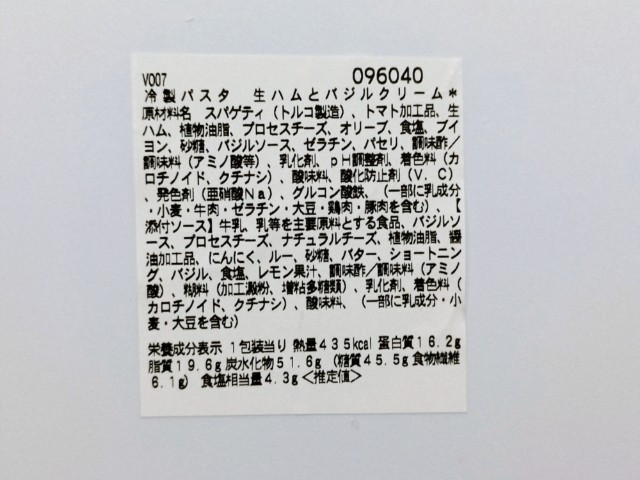 V007 096040
冷製パスタ 生ハムとバジルクリーム*
原材料名 スパゲティ(トルコ製造)、トマト加工品、生
ハム、植物油脂、プロセスチーズ、オリーブ、食塩、ブイ
ヨン、砂糖、バジルソース、ゼラチン、パセリ、調味酢/
調味料(アミノ酸等)、乳化剤、pH調整剤、着色料(カ
ロチノイド、クチナシ)、酸味料、酸化防止剤(V.C)
、発色剤(亜硝酸Na)、グルコン酸鉄、(一部に乳成分
・小麦・牛肉・ゼラチン・大豆・鶏肉・豚肉を含む)、【
添付ソース】牛乳、乳等を主要原料とする食品、バジルソ
ース、プロセスチーズ、ナチュラルチーズ、植物油脂、醤
油加工品、にんにく、ルー、砂糖、バター、ショートニン
グ、バジル、食塩、レモン果汁、調味酢/調味料(アミノ
酸)、糊料(加工澱粉、増粘多糖類)、乳化剤、着色料(
カロチノイド、クチナシ)、酸味料、(一部に乳成分・小
麦・大豆を含む)
栄養成分表示 1包装当り 熱量435kcal 蛋白質16.2g
脂質19.6g 炭水化物51.6g (糖質45.5g 食物繊維
6.1g) 食塩相当量4.3g <推定値>